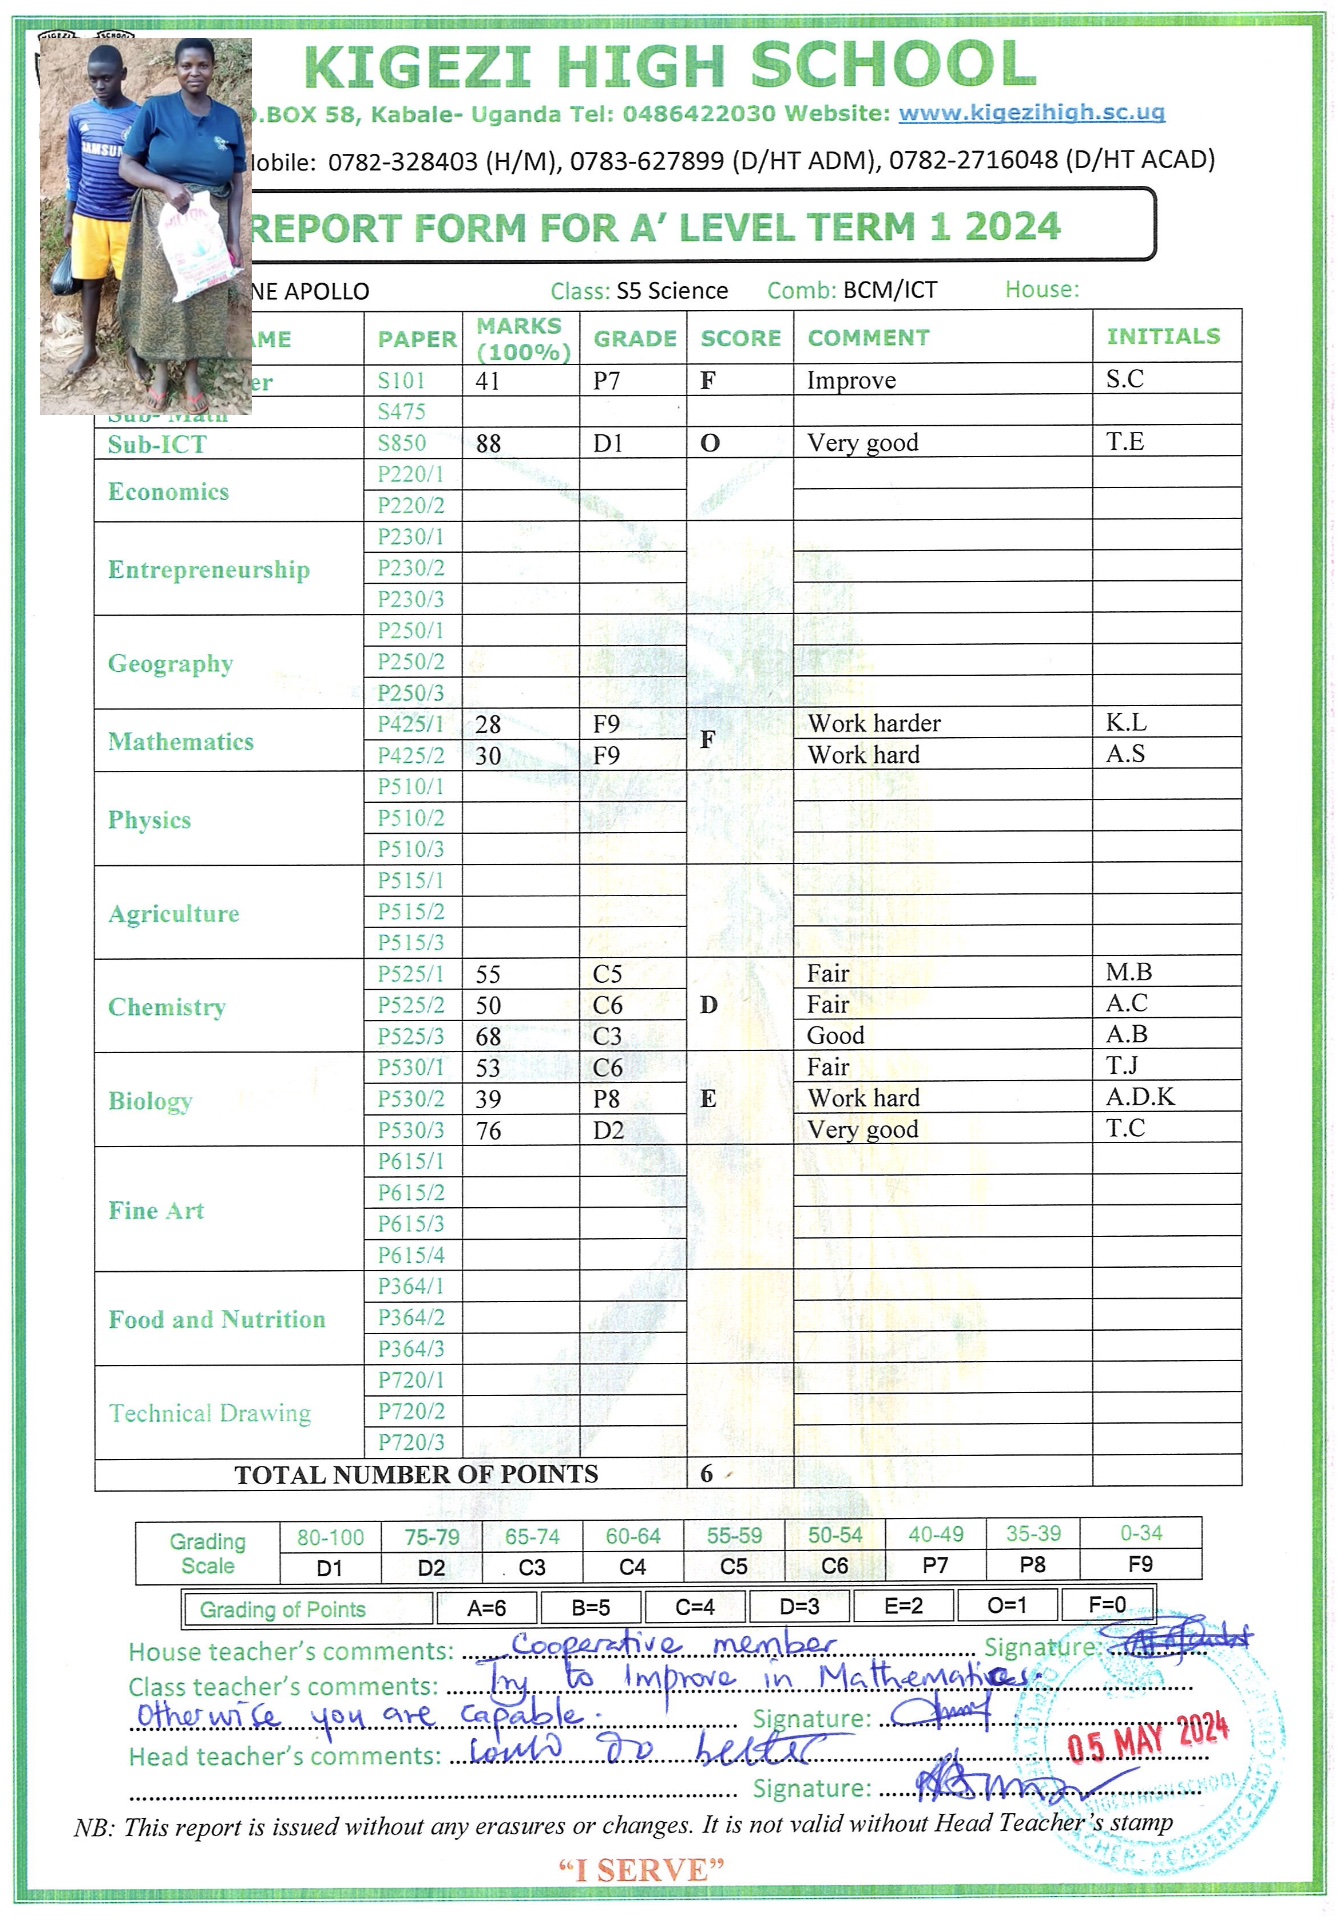 KIGEZI HIGH SCHOOL
.BOX 58, Kabale- Uganda Tel: 0486422030 Website: www.kigezihigh.sc.ug
obile: 0782-328403 (H/M), 0783-627899 (D/HT ADM), 0782-2716048 (D/HT ACAD)
REPORT FORM FOR A’ LEVEL TERM 1 2024
SAMSUN
NE APOLLO Class: S5 Science Comb: BCM/ICT House:
AME PAPER MARKS (100%) GRADE SCORE COMMENT INITIALS
er S101 41 P7 F Improve S.C
Sub- Math S475
Sub-ICT S850 88 D1 O Very good T.E
Economics P220/1
P220/2
Entrepreneurship P230/1
P230/2
P230/3
Geography P250/1
P250/2
P250/3
Mathematics P425/1 28 F9 F Work harder K.L
P425/2 30 F9 Work hard A.S
Physics P510/1
P510/2
P510/3
Agriculture P515/1
P515/2
P515/3
Chemistry P525/1 55 C5 D Fair M.B
P525/2 50 C6 Fair A.C
P525/3 68 C3 Good A.B
Biology P530/1 53 C6 E Fair T.J
P530/2 39 P8 Work hard A.D.K
P530/3 76 D2 Very good T.C
Fine Art P615/1
P615/2
P615/3
P615/4
Food and Nutrition P364/1
P364/2
P364/3
Technical Drawing P720/1
P720/2
P720/3
TOTAL NUMBER OF POINTS 6
Grading Scale 80-100 75-79 65-74 60-64 55-59 50-54 40-49 35-39 0-34
D1 D2 C3 C4 C5 C6 P7 P8 F9
Grading of Points A=6 B=5 C=4 D=3 E=2 O=1 F=0
House teacher’s comments: Cooperative member Signature:
Class teacher’s comments: Try to Improve in Mathematics.
Otherwise you are capable. Signature:
Head teacher’s comments: could do better
Signature:
05 MAY 2024
KIGEZI HIGH SCHOOL
NB: This report is issued without any erasures or changes. It is not valid without Head Teacher’s stamp
“I SERVE”